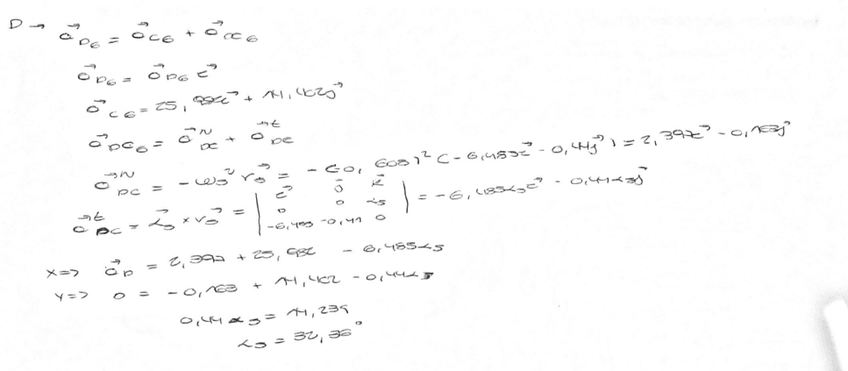 D → a⃗D6 = a⃗C6 + a⃗DC6
a⃗D6 = a⃗D6 i⃗
a⃗C6 = 25,992i⃗ + 11,402j⃗
a⃗DC6 = a⃗ᴺDC + a⃗ᵗDC
a⃗ᴺDC = -ω5² r⃗5 = -(0,608)² (-6,485i⃗ - 0,44j⃗) = 2,397i⃗ - 0,163j⃗
a⃗ᵗDC = α⃗5 × r⃗5 = | i⃗ j⃗ k⃗ 0 0 α5 -6,485 -0,44 0 | = -6,485α5i⃗ - 0,44α5j⃗
X => a⃗D = 2,397 + 25,992 - 6,485α5
Y => 0 = -0,163 + 11,402 - 0,44α5
0,44α5 = 11,239
α5 = 32,38°